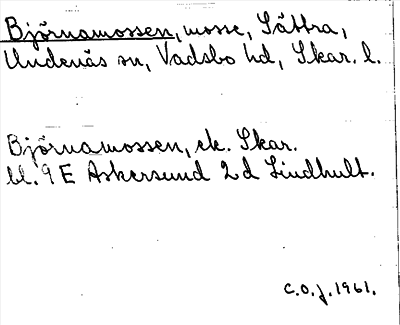 Björnamossen, mosse, Sättra,
Undenäs sn, Vadsbo hd, Skar. l.
Björnamossen, ek. Skar.
bl. 9 E Askersund 2d Lindhult.
C.O.J. 1961.